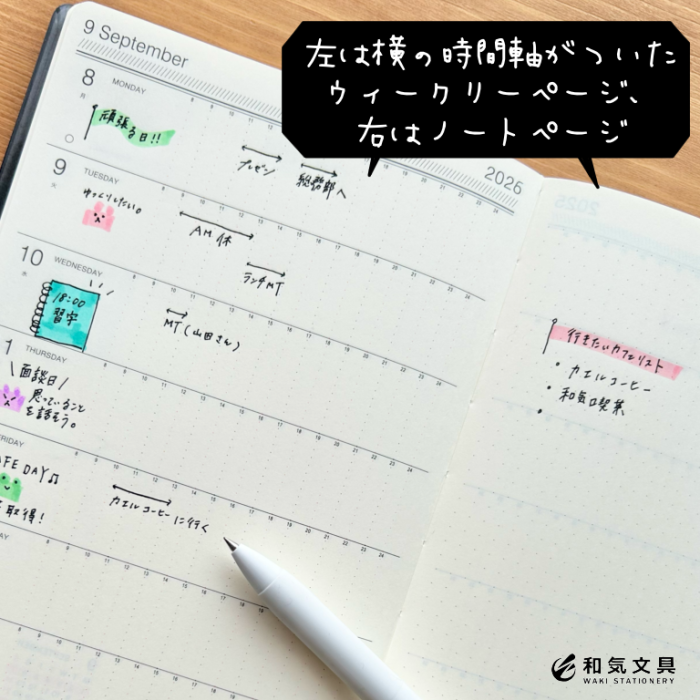 左は横の時間軸がついた
ウィークリーページ、
右はノートページ
9 September
2025
8
MONDAY
月
頑張る日!!
プレゼン
総務部へ
9
TUESDAY
火
ゆっくりしたい。
AM休
ランチMT
10
WEDNESDAY
水
18:00
習字
MT(山田さん)
1
THURSDAY
\面談日/
思っていること
を話そう。
RIDAY
AFE DAY♫
カエルコーヒーに行く
取得!
行きたいカフェリスト
・カエルコーヒー
・和気喫茶
・
和気文具
WAKI STATIONERY